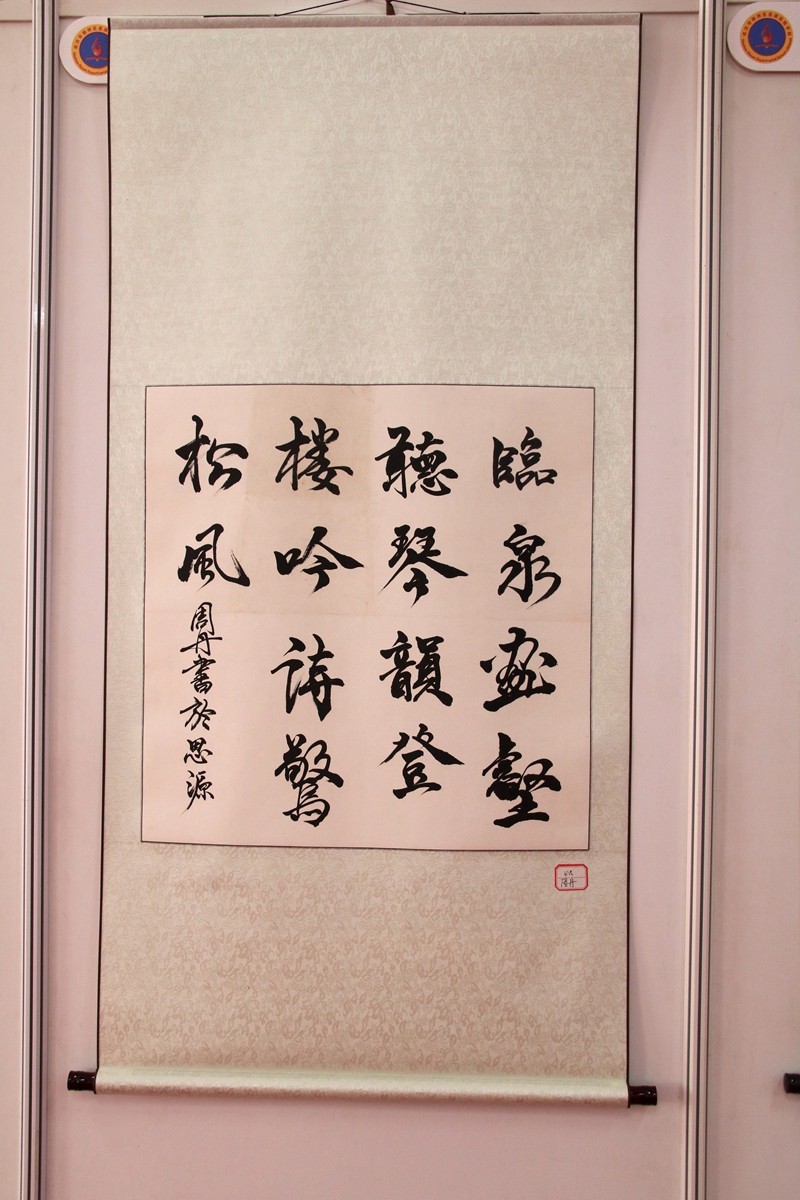 臨泉畫壑
聽琴韻登
楼吟詩驚
松風
周丹書於思源